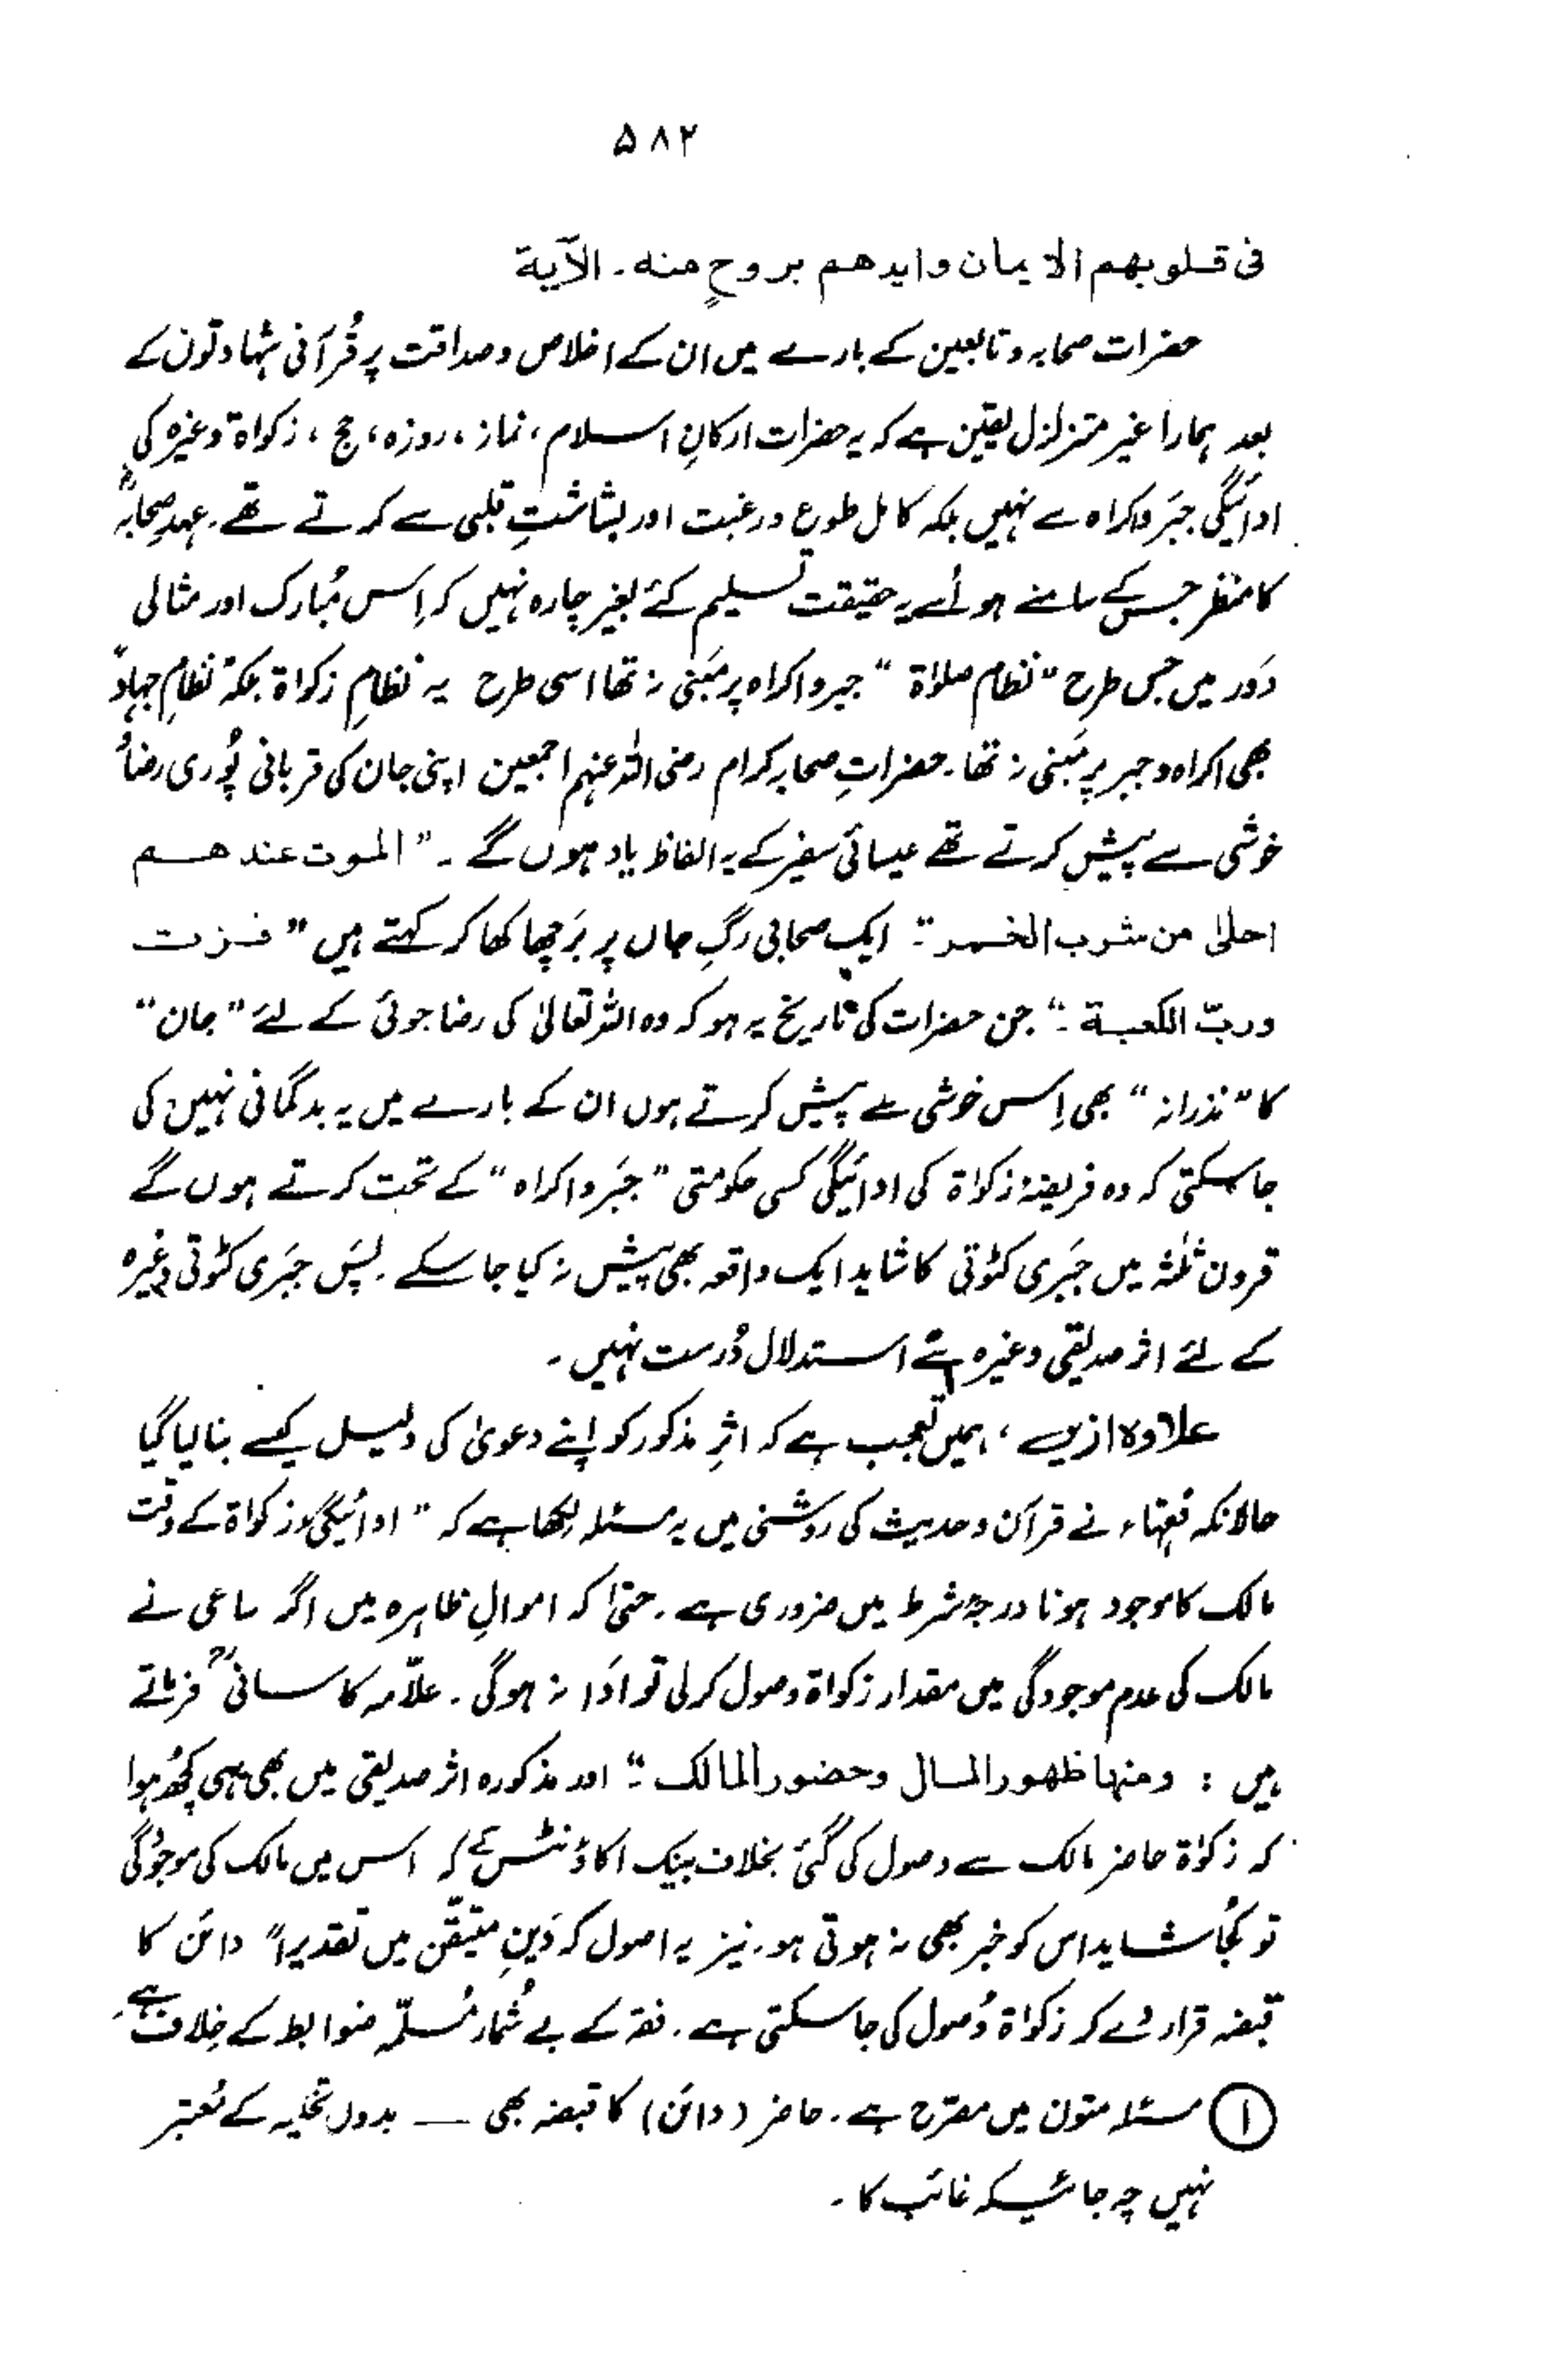 ۵۸۲
فی قلوبهم الایمان وایدهم بروحٍ منه۔ الآیة
حضرات صحابہ وتابعین کے بارے میں ان کے اخلاص وصداقت پر قُرآنی شہادتوں کے
بعد ہمارا غیر متزلزل یقین ہے کہ یہ حضرات ارکانِ اسلام، نماز، روزہ، حج، زکواة وغیرہ کی
ادائیگی جبَر واکراہ سے نہیں بلکہ کامل طوع ورغبت اور بشاشتِ قلبی سے کرتے تھے۔ عہدِ صحابہؓ
کا منظر جس کے سامنے ہو اُسے یہ حقیقت تسلیم کئے بغیر چارہ نہیں کہ اِس مُبارک اور مثالی
دَور میں جس طرح "نظام صلاة" جبر واکراہ پر مَبنی نہ تھا اسی طرح یہ نظامِ زکواة بلکہ نظامِ جہاد
بھی اکراہ وجبر پر مَبنی نہ تھا۔ حضراتِ صحابہ کرام رضی اللہ عنہم اجمعین اپنی جان کی قربانی پُوری رضا
خوشی سے پیش کرتے تھے عیسائی سفیر کے یہ الفاظ یاد ہوں گے۔ "الموت عندهم
احلیٰ من شرب الخمر"۔ ایک صحابی رگِ جاں پر بَرچھا کھا کر کہتے ہیں "فزت
وربّ الکعبة"۔ جن حضرات کی تاریخ یہ ہو کہ وہ اللہ تعالیٰ کی رضا جوئی کے لئے "جان"
کا "نذرانہ" بھی اِس خوشی سے پیش کرتے ہوں ان کے بارے میں یہ بدگمانی نہیں کی
جا سکتی کہ وہ فریضۂ زکواة کی ادائیگی کسی حکومتی "جبَر واکراہ" کے تحت کرتے ہوں گے
قرون ثلٰثہ میں جبَری کٹوتی کا شاید ایک واقعہ بھی پیش نہ کیا جا سکے۔ پسَ جبَری کٹوتی وغیرہ
کے لئے اثر صدیقی وغیرہ سے استدلال دُرست نہیں۔
علاوہ ازیں، ہمیں تعجب ہے کہ اثرِ مذکور کو اپنے دعویٰ کی دلیل کیسے بنا لیا گیا
حالانکہ فقہاء نے قرآن وحدیث کی روشنی میں یہ مسئلہ لِکھا ہے کہ "ادائیگی زکواة کے وقت
مالک کا موجود ہونا درجۂ شرط میں ضروری ہے۔ حتیٰ کہ اموالِ ظاہرہ میں اگر ساعی نے
مالک کی عدم موجودگی میں مقدار زکواة وصول کر لی تو ادَا نہ ہوگی۔ علاّمہ کاسانیؒ فرماتے
ہیں: ومنها ظهور المال وحضور المالك"۔ اور مذکورہ اثر صدیقی میں بھی یہی کچھُ ہوا
کہ زکواة حاضر مالک سے وصول کی گئی بخلاف بینک اکاؤنٹس کے کہ اس میں مالک کی موجودگی
تو کُجا شاید اس کو خبر بھی نہ ہوتی ہو۔ نیز یہ اصول کہ دَینِ متیقّن میں تقدیراً دائن کا
قبضہ قرار دے کر زکواة وُصول کی جا سکتی ہے۔ فقہ کے بے شُمار مُسلّمہ ضوابط کے خِلاف ہے۔
① مسئلہ متون میں مصّرح ہے۔ حاضر (دائن) کا قبضہ بھی — بدوں تخلیہ کے مُعتبر
نہیں چہ جائیکہ غائب کا۔